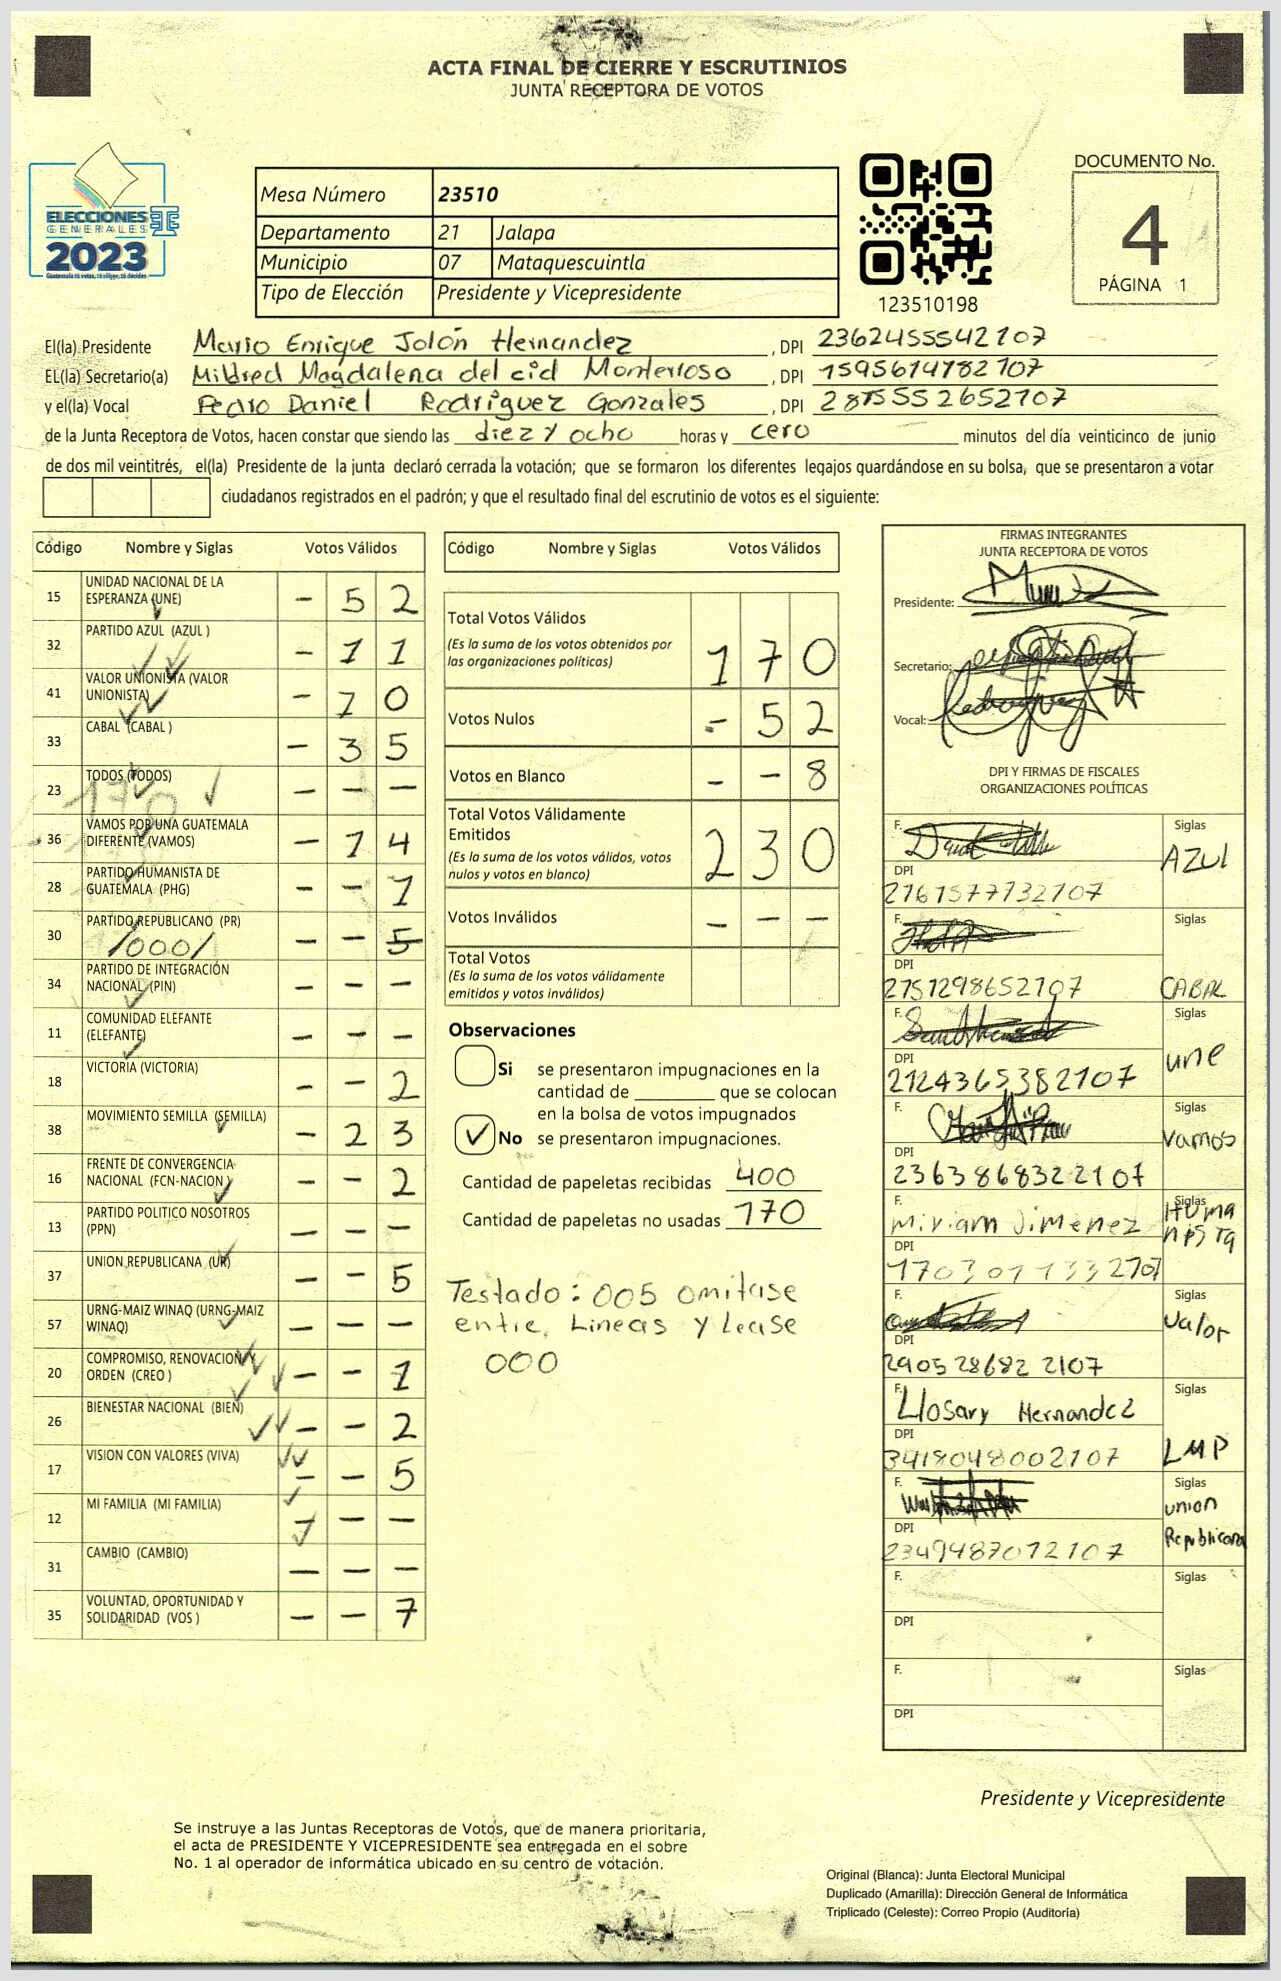 ACTA FINAL DE CIERRE Y ESCRUTINIOS
JUNTA RECEPTORA DE VOTOS
ELECCIONES
GENERALES
2023
Mesa Número 23510
Departamento 21 Jalapa
Municipio 07 Mataquescuintla
Tipo de Elección Presidente y Vicepresidente
123510198
DOCUMENTO No.
4
PÁGINA 1
El(la) Presidente Mario Enrique Jolón Hernandez , DPI 2362455542107
EL(la) Secretario(a) Mildred Magdalena del cid Monterroso , DPI 1595614782107
y el(la) Vocal Pedro Daniel Rodriguez Gonzales , DPI
de la Junta Receptora de Votos, hacen constar que siendo las diez y ocho horas y cero minutos del día veinticinco de junio
de dos mil veintitrés, el(la) Presidente de la junta declaró cerrada la votación; que se formaron los diferentes legajos quardándose en su bolsa, que se presentaron a votar
ciudadanos registrados en el padrón; y que el resultado final del escrutinio de votos es el siguiente:
Código Nombre y Siglas Votos Válidos
15 UNIDAD NACIONAL DE LA ESPERANZA (UNE) - 5 2
32 PARTIDO AZUL (AZUL ) - 1 1
41 VALOR UNIONISTA (VALOR UNIONISTA) - 1 0
33 CABAL (CABAL ) - 3 5
23 TODOS (TODOS) - - -
36 VAMOS POR UNA GUATEMALA DIFERENTE (VAMOS) - 1 4
28 PARTIDO HUMANISTA DE GUATEMALA (PHG) - - 1
30 PARTIDO REPUBLICANO (PR) /000/ - - 5
34 PARTIDO DE INTEGRACIÓN NACIONAL (PIN) - - -
11 COMUNIDAD ELEFANTE (ELEFANTE) - - -
18 VICTORIA (VICTORIA) - - 2
38 MOVIMIENTO SEMILLA (SEMILLA) - 2 3
16 FRENTE DE CONVERGENCIA NACIONAL (FCN-NACION ) - - 2
13 PARTIDO POLITICO NOSOTROS (PPN) - - -
37 UNION REPUBLICANA (UR) - - 5
57 URNG-MAIZ WINAQ (URNG-MAIZ WINAQ) - - -
20 COMPROMISO, RENOVACION Y ORDEN (CREO ) - - 1
26 BIENESTAR NACIONAL (BIEN) - - 2
17 VISION CON VALORES (VIVA) - - 5
12 MI FAMILIA (MI FAMILIA) - - -
31 CAMBIO (CAMBIO) - - -
35 VOLUNTAD, OPORTUNIDAD Y SOLIDARIDAD (VOS ) - - 7
Código Nombre y Siglas Votos Válidos
Total Votos Válidos 1 7 0
(Es la suma de los votos obtenidos por
las organizaciones políticas)
Votos Nulos - 5 2
Votos en Blanco - - 8
Total Votos Válidamente
Emitidos 2 3 0
(Es la suma de los votos válidos, votos
nulos y votos en blanco)
Votos Inválidos - - -
Total Votos
(Es la suma de los votos válidamente
emitidos y votos inválidos)
Observaciones
Si se presentaron impugnaciones en la
cantidad de ________ que se colocan
en la bolsa de votos impugnados
✓ No se presentaron impugnaciones.
Cantidad de papeletas recibidas 400
Cantidad de papeletas no usadas 170
Testado: 005 omitase
entre Lineas y Lease
000
FIRMAS INTEGRANTES
JUNTA RECEPTORA DE VOTOS
Presidente:
Secretario:
Vocal:
DPI Y FIRMAS DE FISCALES
ORGANIZACIONES POLÍTICAS
F. Siglas
AZUL
DPI
2161577732107
F. Siglas
DPI
2751298652107 CABAL
F. Siglas
une
DPI
2124365382107
F. Siglas
Vamos
DPI
2363868322107
F. Miriam Jimenez Siglas
HUMANISTA
DPI
1703011332107
F. Siglas
Valor
DPI
2905286822107
F. Llosary Hernandez Siglas
DPI
3418048002107 LMP
F. Siglas
union
Republicana
DPI
2349487072107
F. Siglas
DPI
F. Siglas
DPI
Presidente y Vicepresidente
Se instruye a las Juntas Receptoras de Votos, que de manera prioritaria,
el acta de PRESIDENTE Y VICEPRESIDENTE sea entregada en el sobre
No. 1 al operador de informática ubicado en su centro de votación.
Original (Blanca): Junta Electoral Municipal
Duplicado (Amarilla): Dirección General de Informática
Triplicado (Celeste): Correo Propio (Auditoría)